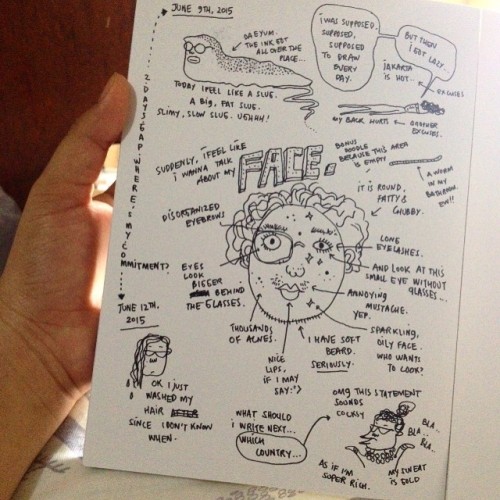 JUNE 9TH, 2015
DAEYUM.
THE INK EDT
ALL OVER THE
PLACE...
I WAS SUPPOSED,
SUPPOSED,
SUPPOSED
TO DRAW
EVERY
DAY.
BUT THEN
I GOT LAZY.
JAKARTA
IS HOT.
EXCUSES
TODAY I FEEL LIKE A SLUG.
A BIG, FAT SLUG.
SLIMY, SLOW SLUG. UGHHH!
MY BACK HURTS
ANOTHER
EXCUSES.
2 DAYS GAP. WHERE IS MY COMMITMENT?
SUDDENLY, I FEEL LIKE
I WANNA TALK
ABOUT MY
FACE.
BONUS
DOODLE
BECAUSE THIS AREA
IS EMPTY
A WORM
IN MY
BATHROOM.
EW!!
IT IS ROUND,
FATTY &
CHUBBY.
DISORGANIZED
EYEBROWS
LONG
EYELASHES.
AND LOOK AT THIS
SMALL EYE WITHOUT
GLASSES...
EYES
LOOK
BIGGER
BEHIND
THE GLASSES.
ANNOYING
MUSTACHE.
YEP.
JUNE 12TH,
2015
THOUSANDS
OF ACNES.
I HAVE SOFT
BEARD.
SERIOUSLY.
SPARKLING,
OILY FACE.
WHO WANTS
TO LOOK?
NICE
LIPS,
IF I MAY
SAY :">
OK I JUST
WASHED MY
HAIR
SINCE I DON'T KNOW
WHEN.
WHAT SHOULD
I WRITE NEXT...
WHICH
COUNTRY...
OMG THIS STATEMENT
SOUNDS
COCKSY
BLA..
BLA..
BLA..
AS IF I'M
SUPER RICH.
MY SWEAT
IS GOLD